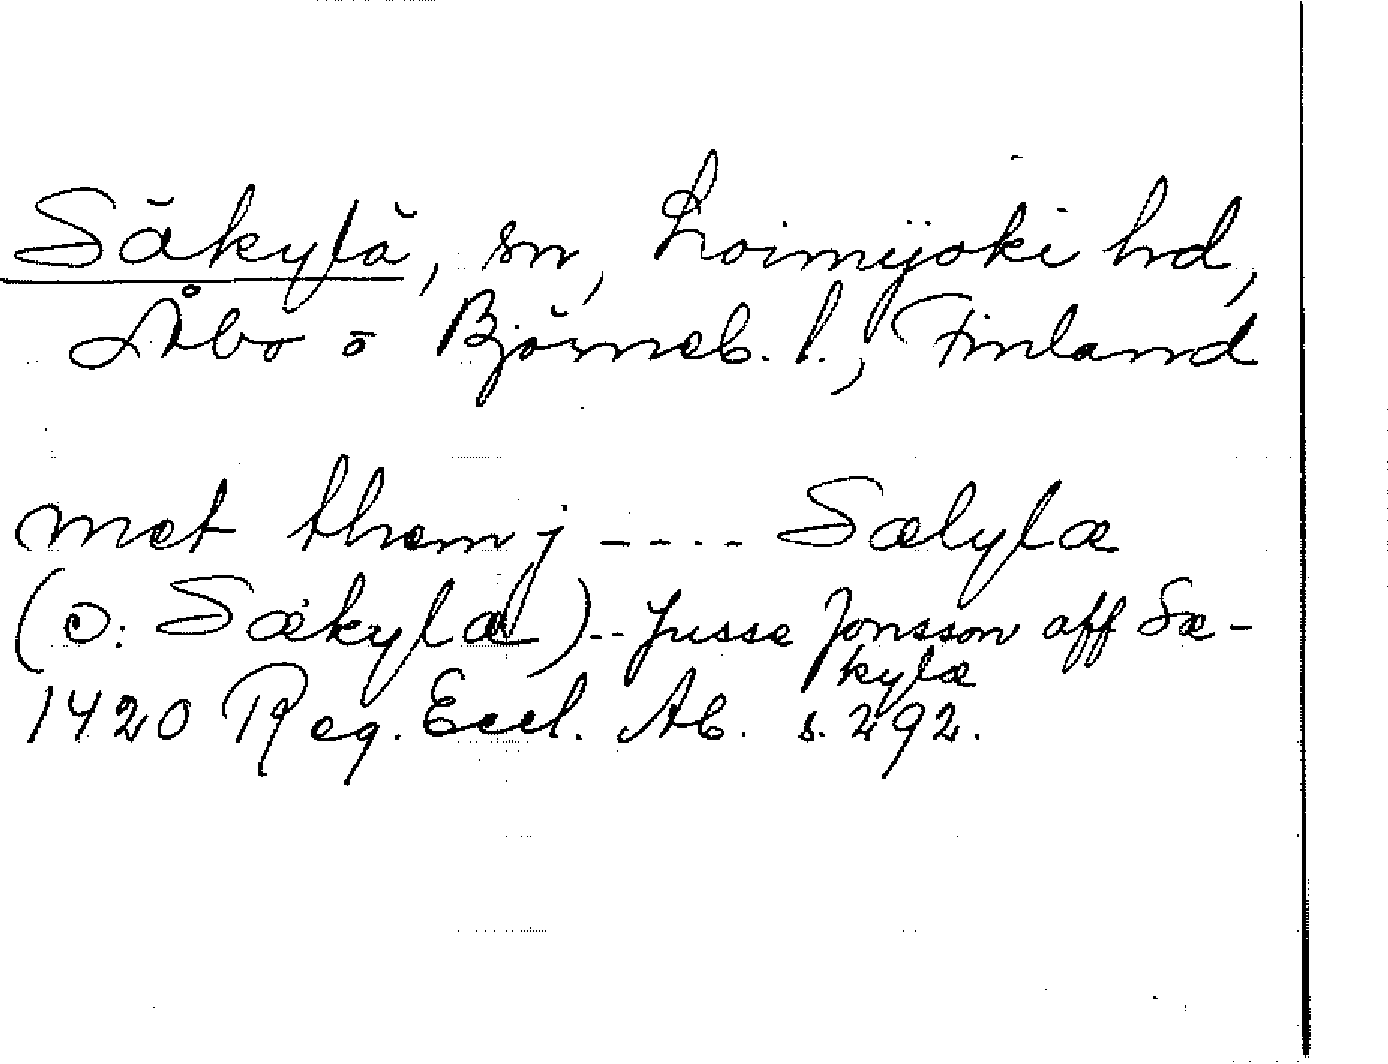 Säkylä, sn, Loimijoki hd,
Åbo o Björneb. l., Finland
met them j ---- Sælylæ
(ɔ: Sækylæ)-- Jusse Jonsson aff Sæ-
kylæ
1420 Reg. Eccl. Ab. s. 292.